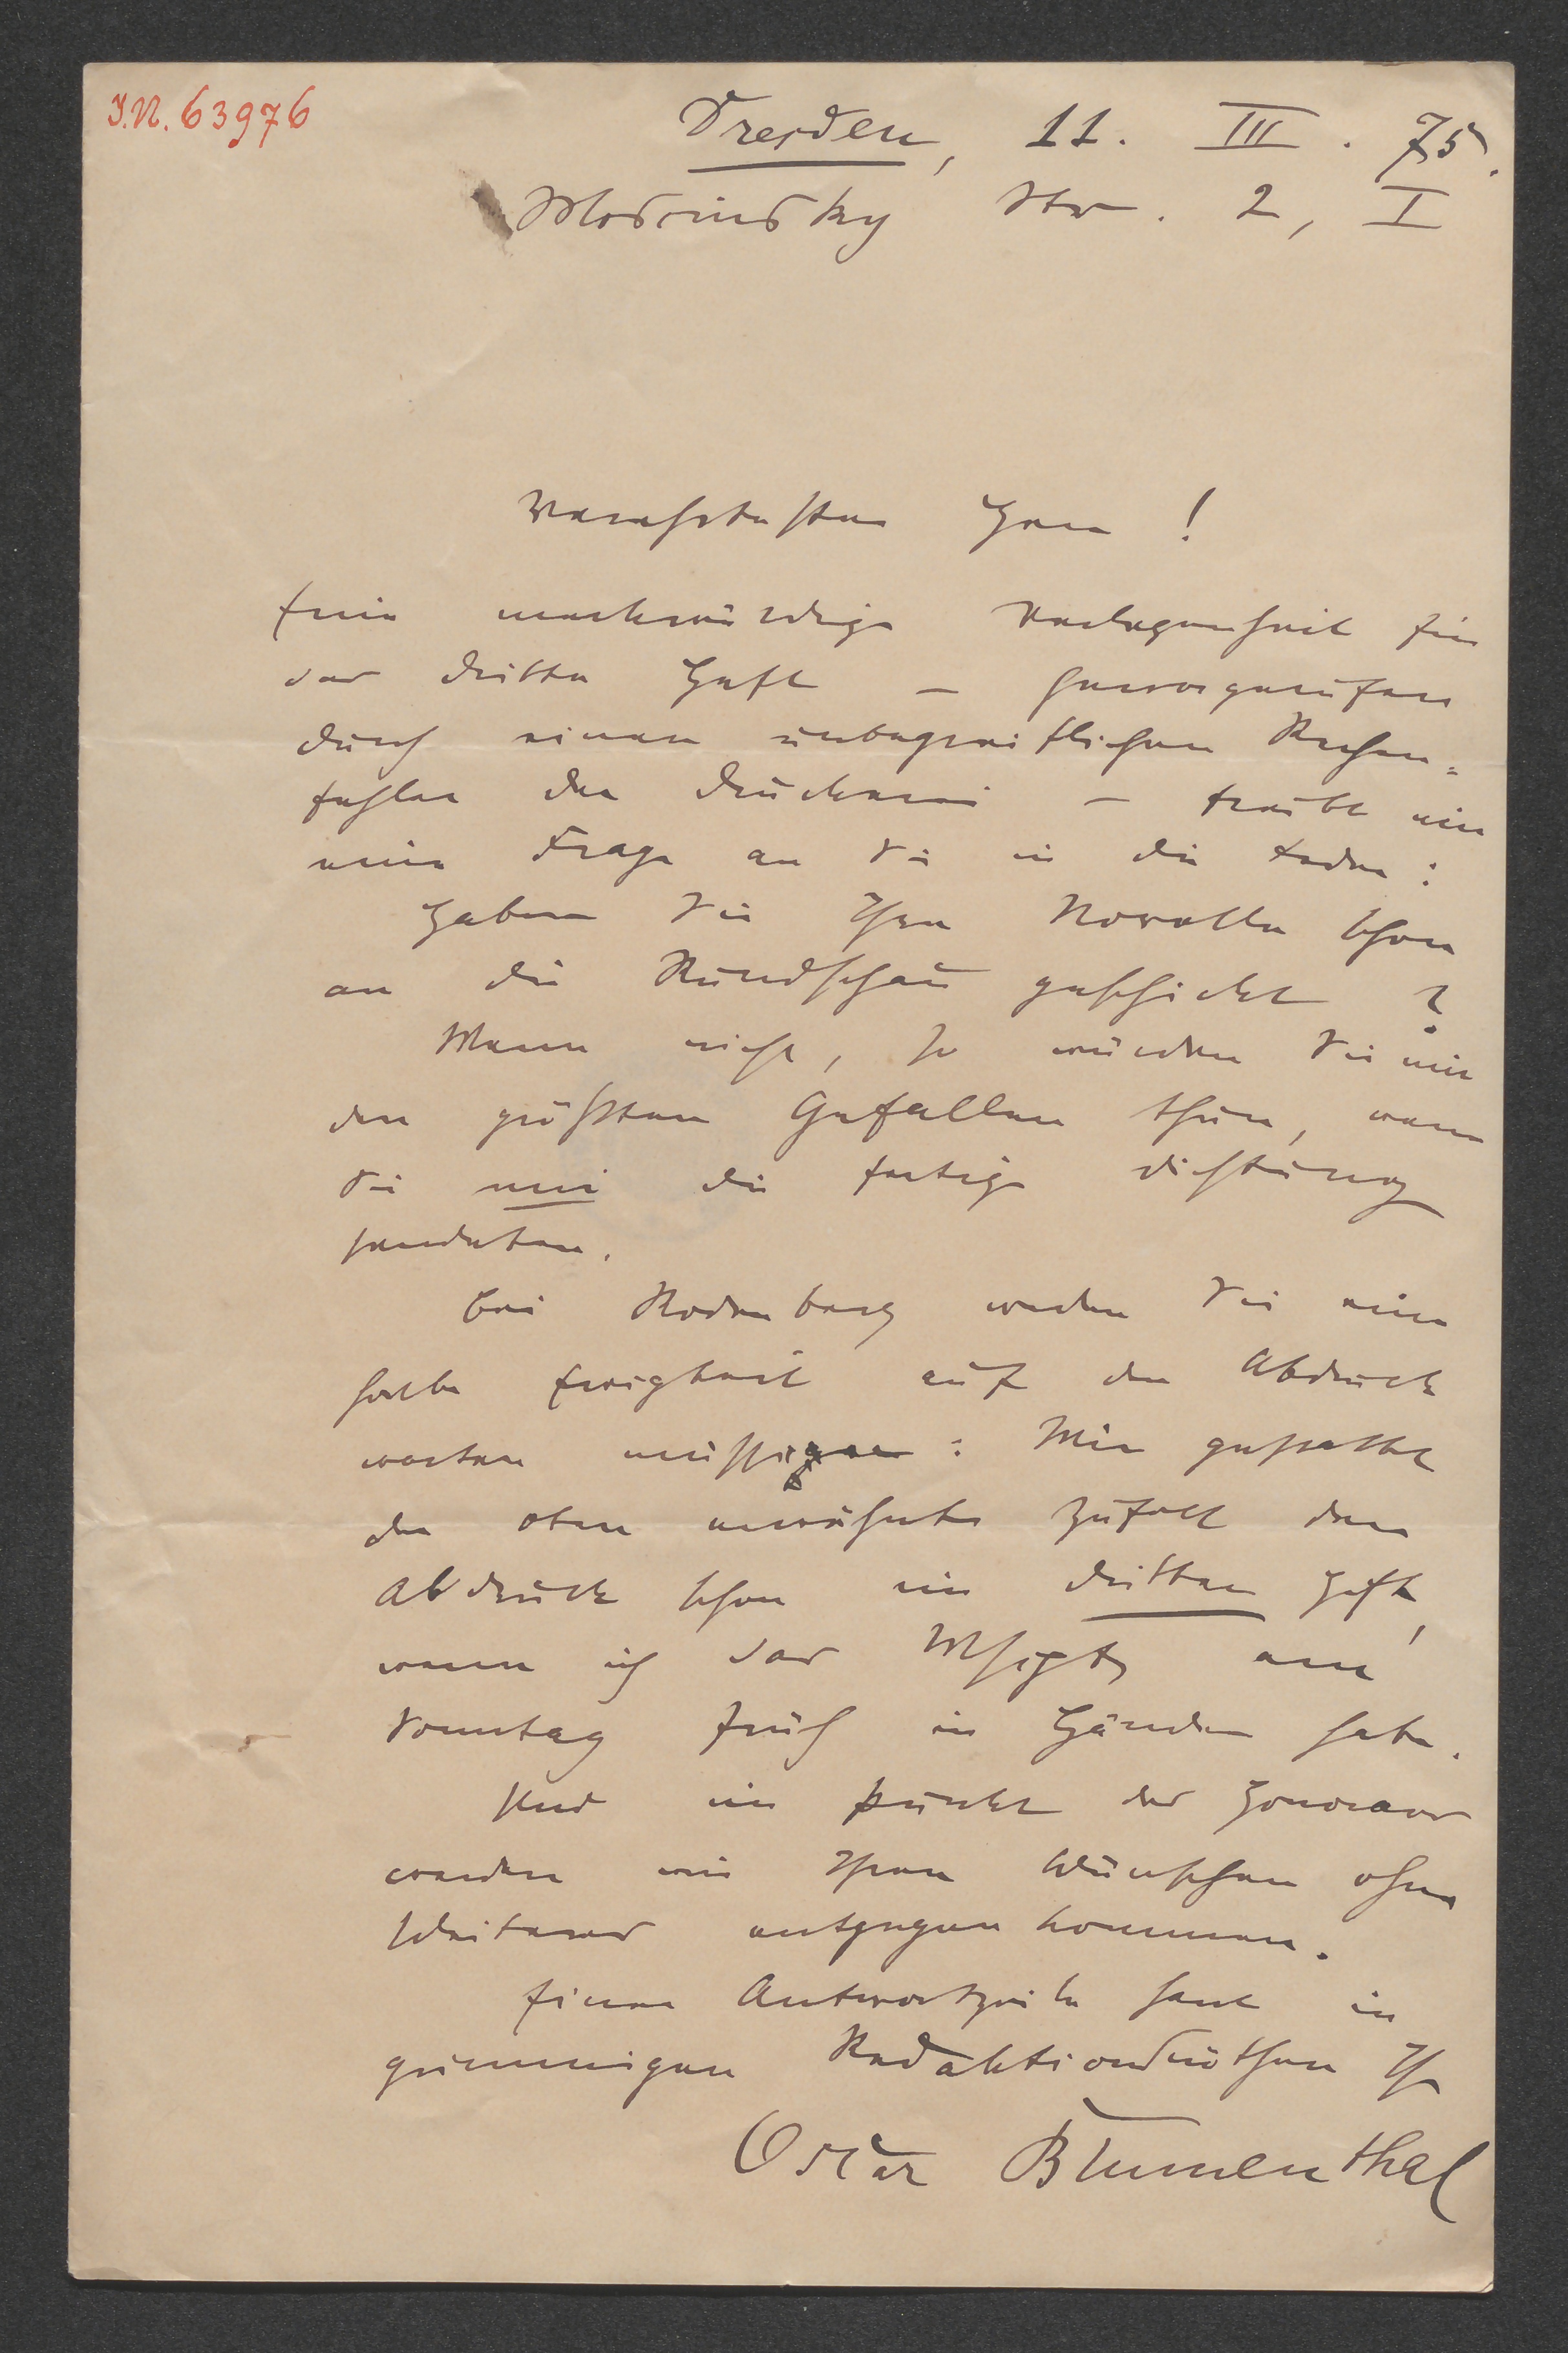 I.N. 63976
Dresden, 11. III. 75.
Moscinsky Str. 2, I
Verehrtester Herr!
Eine merkwürdige Verlegenheit für
das dritte Heft – hervorgerufen
durch einen unbegreiflichen Rechen-
fehler der Druckerei – treibt mir
eine Frage an Sie in die Feder:
Haben Sie Ihre Novelle schon
an die Rundschau geschickt?
Wenn nicht, so würden Sie mir
den größten Gefallen thun, wenn
Sie mir die fertige Dichtung
sendeten.
Bei Rodenberg werden Sie eine
halbe Ewigkeit auf den Abdruck
warten müssen: Mir gestattet
der oben erwähnte Zufall den
Abdruck schon im dritten Heft,
wenn ich das Mscpt am
Sonntag früh in Händen habe.
Und im Punkte des Honorars
werden wir Ihren Wünschen ohne
Weiteres entgegen kommen.
Einer Antwortzeile harrt in
grimmigen Redaktionsnöthen Ihr
Oscar Blumenthal